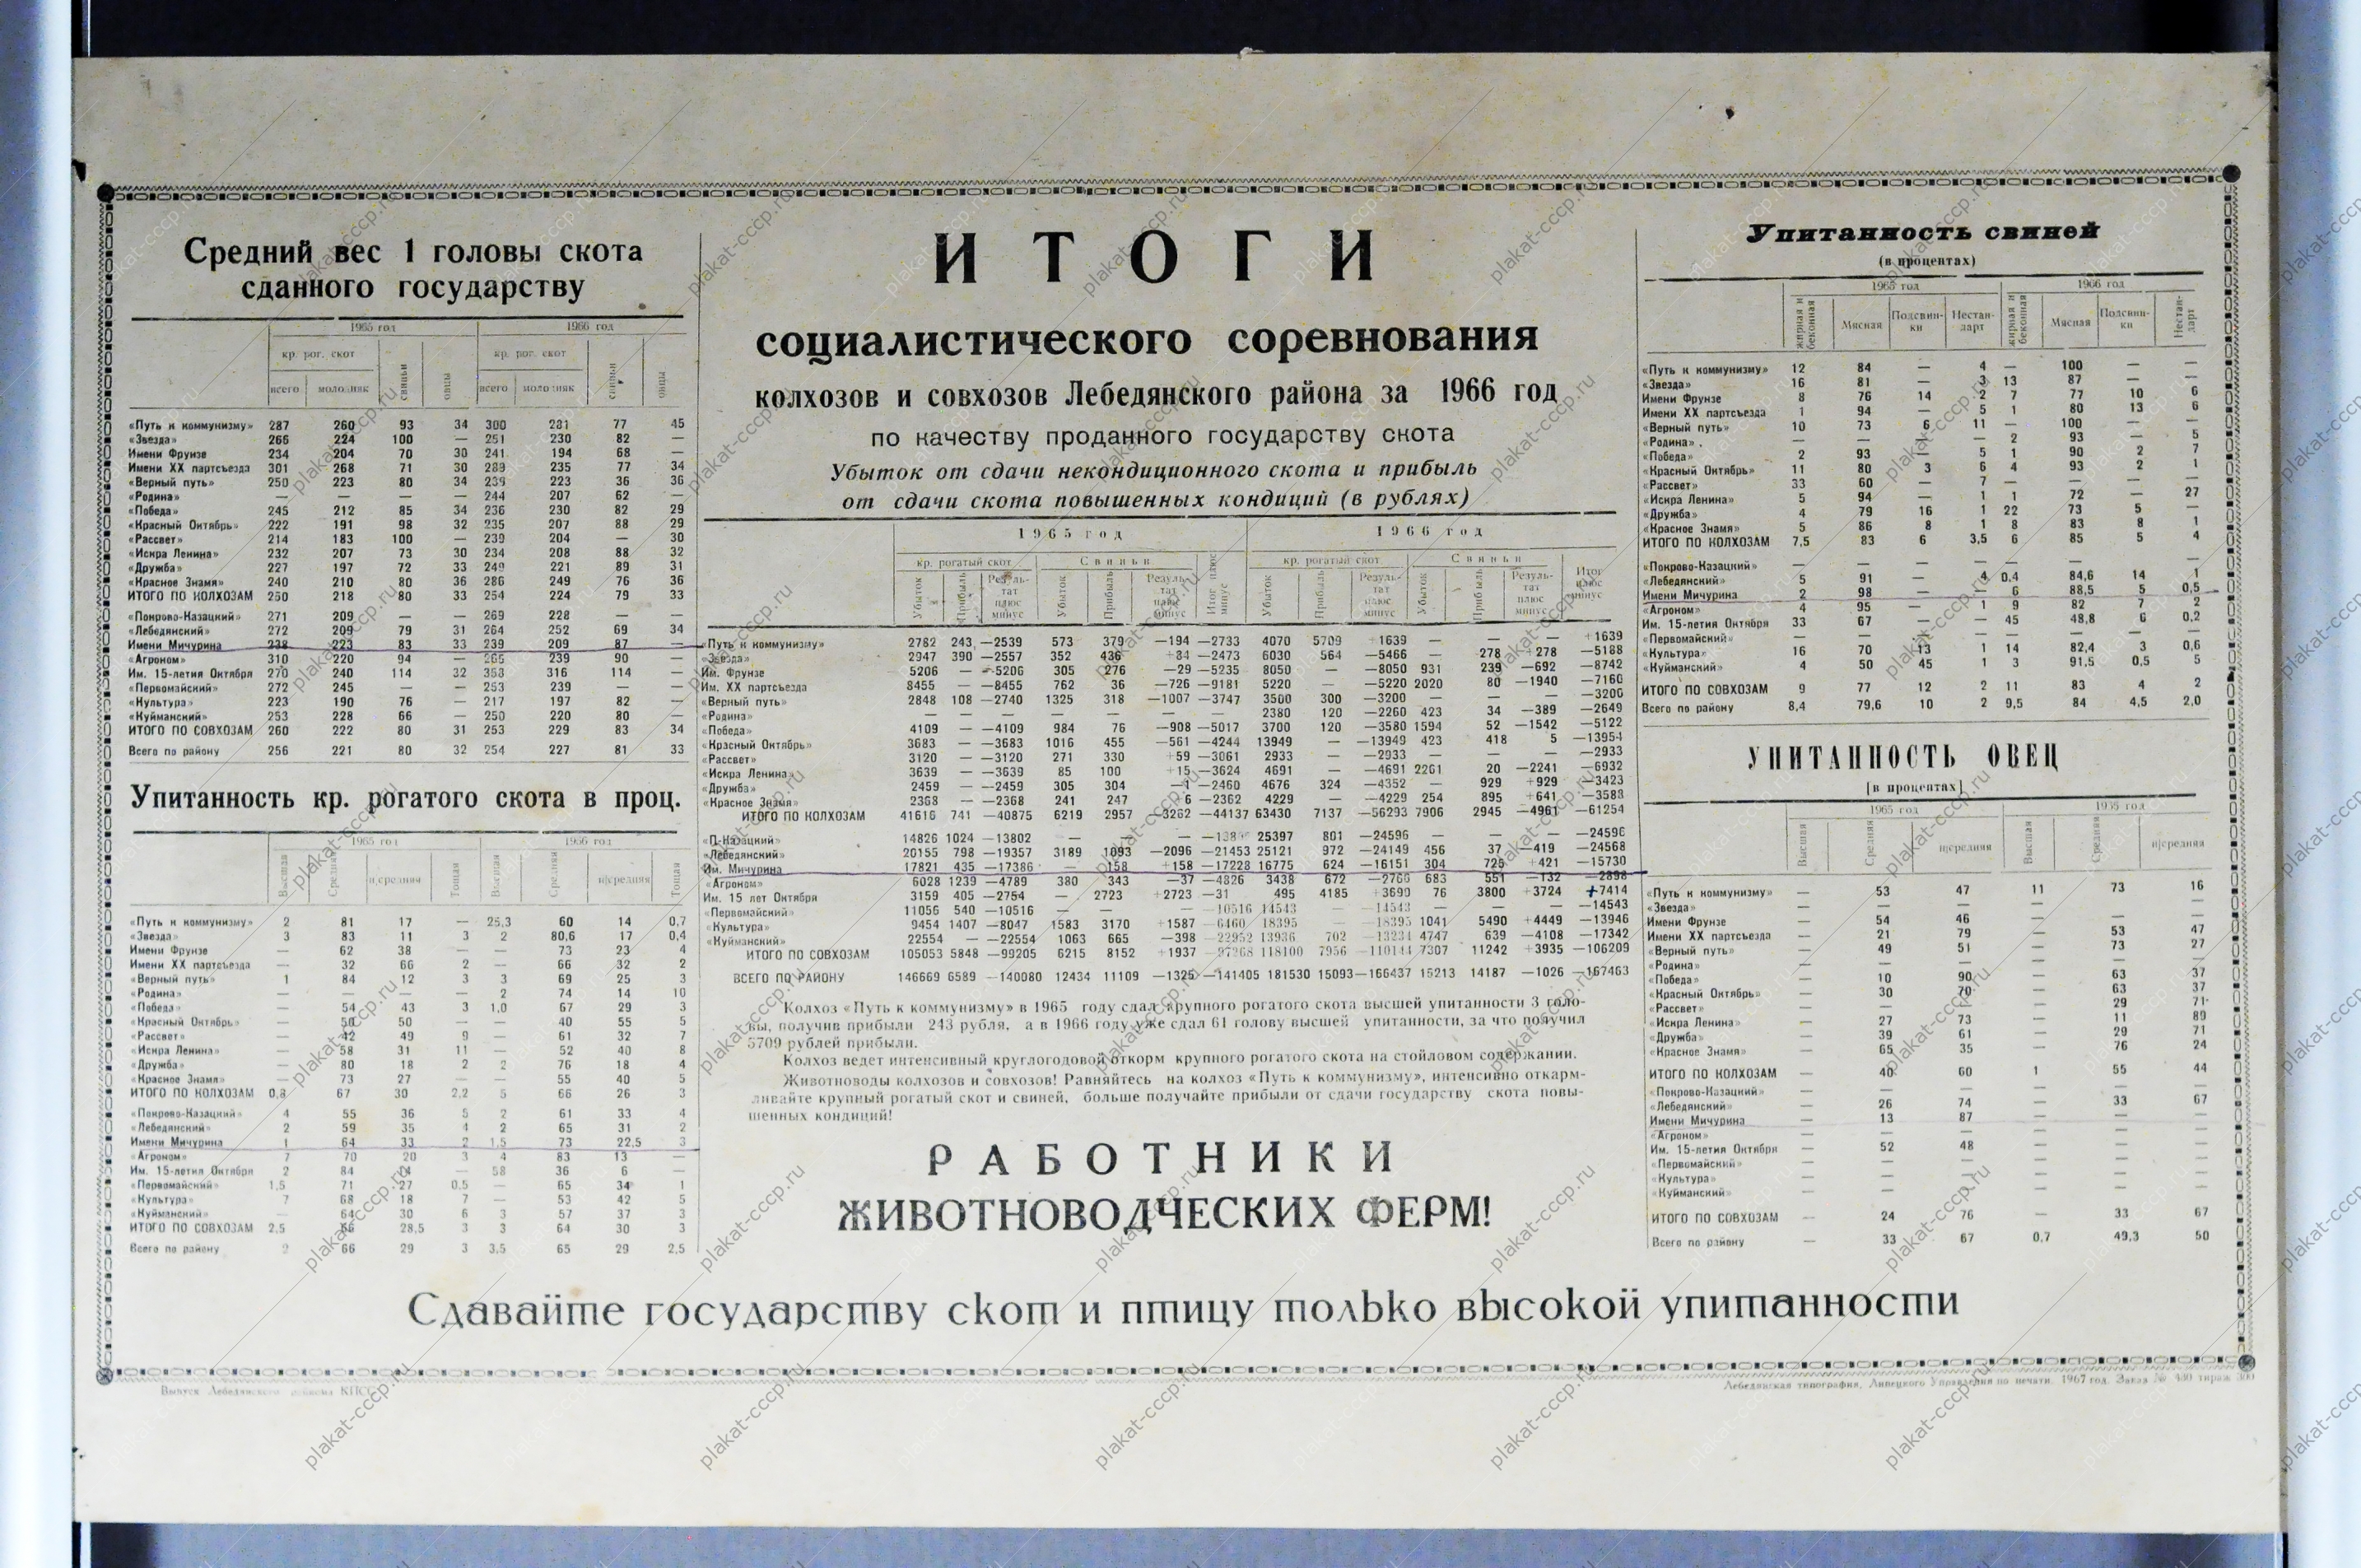 Средний вес 1 головы скота
сданного государству
1965 год 1966 год
кр. рог. скот свиньи овцы кр. рог. скот свиньи овцы
всего молодняк всего молодняк
«Путь к коммунизму» 287 260 93 34 300 231 77 45
«Звезда» 266 224 100 — 251 230 82 —
Имени Фрунзе 234 204 70 30 241 194 68 —
Имени XX партсъезда 301 268 71 30 289 235 77 34
«Верный путь» 250 223 80 34 239 223 36 36
«Родина» — — — — 244 207 62 —
«Победа» 245 212 85 34 236 230 82 29
«Красный Октябрь» 222 191 98 32 235 207 88 29
«Рассвет» 214 183 100 — 239 204 — 30
«Искра Ленина» 232 207 73 30 234 208 88 32
«Дружба» 227 197 72 33 249 221 89 31
«Красное Знамя» 240 210 80 36 286 249 76 36
ИТОГО ПО КОЛХОЗАМ 250 218 80 33 254 224 79 33
«Покрово-Казацкий» 271 209 — — 269 228 — —
«Лебедянский» 272 209 79 31 264 252 69 34
Имени Мичурина 238 223 83 33 239 209 87 —
«Агроном» 310 220 94 — 239 90 —
Им. 15-летия Октября 270 240 114 32 353 316 114 —
«Первомайский» 272 245 — — 253 239 — —
«Культура» 223 190 76 — 217 197 82 —
«Куйманский» 253 228 66 — 250 220 80 —
ИТОГО ПО СОВХОЗАМ 260 222 80 31 253 229 83 34
Всего по району 256 221 80 32 254 227 81 33
Упитанность кр. рогатого скота в проц.
1965 год 1966 год
Высшая Средняя н|средняя Тощая Высшая Средняя н|средняя Тощая
«Путь к коммунизму» 2 81 17 — 25,3 60 14 0,7
«Звезда» 3 83 11 3 2 80,6 17 0,4
Имени Фрунзе — 62 38 — — 73 23 4
Имени XX партсъезда — 32 66 2 — 66 32 2
«Верный путь» 1 84 12 3 3 69 25 3
«Родина» — — — — 2 74 14 10
«Победа» — 54 43 3 1,0 67 29 3
«Красный Октябрь» — 50 50 — — 40 55 5
«Рассвет» — 42 49 9 — 61 32 7
«Искра Ленина» — 58 31 11 — 52 40 8
«Дружба» — 80 18 2 2 76 18 4
«Красное Знамя» — 73 27 — — 55 40 5
ИТОГО ПО КОЛХОЗАМ 0,8 67 30 2,2 5 66 26 3
«Покрово-Казацкий» 4 55 36 5 2 61 33 4
«Лебедянский» 2 59 35 4 2 65 31 2
Имени Мичурина 1 64 33 2 1,5 73 22,5 3
«Агроном» 7 70 20 3 4 83 13 —
Им. 15-летия Октября 2 84 14 — 58 36 6 —
«Первомайский» 1,5 71 27 0,5 — 65 34 1
«Культура» 7 68 18 7 — 53 42 5
«Куйманский» 64 30 6 3 57 37 3
ИТОГО ПО СОВХОЗАМ 2,5 66 28,5 3 3 64 30 3
Всего по району 2 66 29 3 3,5 65 29 2,5
ИТОГИ
социалистического соревнования
колхозов и совхозов Лебедянского района за 1966 год
по качеству проданного государству скота
Убыток от сдачи некондиционного скота и прибыль
от сдачи скота повышенных кондиций (в рублях)
1965 год 1966 год
кр. рогатый скот Свиньи Итог плюс минус кр. рогатый скот Свиньи Итог плюс минус
Убыток Прибыль Резуль-тат плюс минус Убыток Прибыль Резуль-тат плюс минус Убыток Прибыль Резуль-тат плюс минус Убыток Прибыль Резуль-тат плюс минус
«Путь к коммунизму» 2782 243 —2539 573 379 —194 —2733 4070 5709 +1639 — — — +1639
«Звезда» 2947 390 —2557 352 436 +84 —2473 6030 564 —5466 — 278 +278 —5188
Им. Фрунзе 5206 — —5206 305 276 —29 —5235 8050 — —8050 931 239 —692 —8742
Им. XX партсъезда 8455 — —8455 762 36 —726 —9181 5220 — —5220 2020 80 —1940 —7160
«Верный путь» 2848 108 —2740 1325 318 —1007 —3747 3500 300 —3200 — — — —3200
«Родина» — — — — — 2380 120 —2260 423 34 —389 —2649
«Победа» 4109 — —4109 984 76 —908 —5017 3700 120 —3580 1594 52 —1542 —5122
«Красный Октябрь» 3683 — —3683 1016 455 —561 —4244 13949 — —13949 423 418 5 —13954
«Рассвет» 3120 — —3120 271 330 +59 —3061 2933 — —2933 — — — —2933
«Искра Ленина» 3639 — —3639 85 100 +15 —3624 4691 — —4691 2261 20 —2241 —6932
«Дружба» 2459 — —2459 305 304 —1 —2460 4676 324 —4352 — 929 +929 —3423
«Красное Знамя» 2368 — —2368 241 247 6 —2362 4229 — —4229 254 895 +641 —3588
ИТОГО ПО КОЛХОЗАМ 41616 741 —40875 6219 2957 —3262 —44137 63430 7137 —56293 7906 2945 —4961 —61254
«П-Казацкий» 14826 1024 —13802 — — 25397 801 —24596 — — — —24596
«Лебедянский» 20155 798 —19357 3189 1093 —2096 —21453 25121 972 —24149 456 37 —419 —24568
Им. Мичурина 17821 435 —17386 — 158 +158 —17228 16775 624 —16151 304 725 +421 —15730
«Агроном» 6028 1239 —4789 380 343 —37 —4826 3438 672 —2766 683 551 —132 —2898
Им. 15 лет Октября 3159 405 —2754 — 2723 +2723 —31 495 4185 +3690 76 3800 +3724 +7414
«Первомайский» 11056 540 —10516 — — — —10516 14543 — —14543 — — — —14543
«Культура» 9454 1407 —8047 1583 3170 +1587 —6460 18395 —18395 1041 5490 +4449 —13946
«Куйманский» 22554 — —22554 1063 665 —398 —22952 13936 702 —13234 4747 639 —4108 —17342
ИТОГО ПО СОВХОЗАМ 105053 5848 —99205 6215 8152 +1937 —97268 118100 7956 —110144 7307 11242 +3935 —106209
ВСЕГО ПО РАЙОНУ 146669 6589 —140080 12434 11109 —1325 —141405 181530 15093 —166437 15213 14187 —1026 —167463
Колхоз «Путь к коммунизму» в 1965 году сдал крупного рогатого скота высшей упитанности 3 голо-
вы, получив прибыли 243 рубля, а в 1966 году уже сдал 61 голову высшей упитанности, за что получил
5709 рублей прибыли.
Колхоз ведет интенсивный круглогодовой откорм крупного рогатого скота на стойловом содержании.
Животноводы колхозов и совхозов! Равняйтесь на колхоз «Путь к коммунизму», интенсивно откарм-
ливайте крупный рогатый скот и свиней, больше получайте прибыли от сдачи государству скота повы-
шенных кондиций!
РАБОТНИКИ
ЖИВОТНОВОДЧЕСКИХ ФЕРМ!
Упитанность свиней
(в процентах)
1965 год 1966 год
жирная и беконная Мясная Подсвин-ки Нестан-дарт жирная и беконная Мясная Подсвин-ки Нестан-дарт
«Путь к коммунизму» 12 84 — 4 — 100 — —
«Звезда» 16 81 — 3 13 87 — —
Имени Фрунзе 8 76 14 2 7 77 10 6
Имени XX партсъезда 1 94 — 5 1 80 13 6
«Верный путь» 10 73 6 11 — 100 — —
«Родина» — — — — 2 93 — 5
«Победа» 2 93 — 5 1 90 2 7
«Красный Октябрь» 11 80 3 6 4 93 2 1
«Рассвет» 33 60 — 7 — — — —
«Искра Ленина» 5 94 — 1 1 72 — 27
«Дружба» 4 79 16 1 22 73 5 —
«Красное Знамя» 5 86 8 1 8 83 8 1
ИТОГО ПО КОЛХОЗАМ 7,5 83 6 3,5 6 85 5 4
«Покрово-Казацкий» — — — — — — — —
«Лебедянский» 5 91 — 4 0,4 84,6 14 1
Имени Мичурина 2 98 — 6 88,5 5 0,5
«Агроном» 4 95 — 1 9 82 7 2
Им. 15-летия Октября 33 67 — — 45 48,8 6 0,2
«Первомайский» — — — — — — — —
«Культура» 16 70 13 1 14 82,4 3 0,6
«Куйманский» 4 50 45 1 3 91,5 0,5 5
ИТОГО ПО СОВХОЗАМ 9 77 12 2 11 83 4 2
Всего по району 8,4 79,6 10 2 9,5 84 4,5 2,0
УПИТАННОСТЬ ОВЕЦ
[в процентах]
1965 год 1955 год
Высшая Средняя н|средняя Высшая Средняя н|средняя
«Путь к коммунизму» — 53 47 11 73 16
«Звезда» — — — — — —
Имени Фрунзе — 54 46 — — —
Имени XX партсъезда — 21 79 — 53 47
«Верный путь» — 49 51 — 73 27
«Родина» — — — — — —
«Победа» — 10 90 — 63 37
«Красный Октябрь» — 30 70 — 63 37
«Рассвет» — — — — 29 71
«Искра Ленина» — 27 73 — 11 89
«Дружба» — 39 61 — 29 71
«Красное Знамя» — 65 35 — 76 24
ИТОГО ПО КОЛХОЗАМ — 40 60 1 55 44
«Покрово-Казацкий» — — — — — —
«Лебедянский» — 26 74 — 33 67
Имени Мичурина — 13 87 — — —
«Агроном» — — — — — —
Им. 15-летия Октября — 52 48 — — —
«Первомайский» — — — — — —
«Культура» — — — — — —
«Куйманский» — — — — — —
ИТОГО ПО СОВХОЗАМ — 24 76 — 33 67
Всего по району — 33 67 0,7 49,3 50
Сдавайте государству скот и птицу только высокой упитанности
Выпуск Лебедянского райкома КПСС
Лебедянская типография, Липецкого Управления по печати. 1967 год. Заказ № 430 тираж 300
plakat-cccp.ru